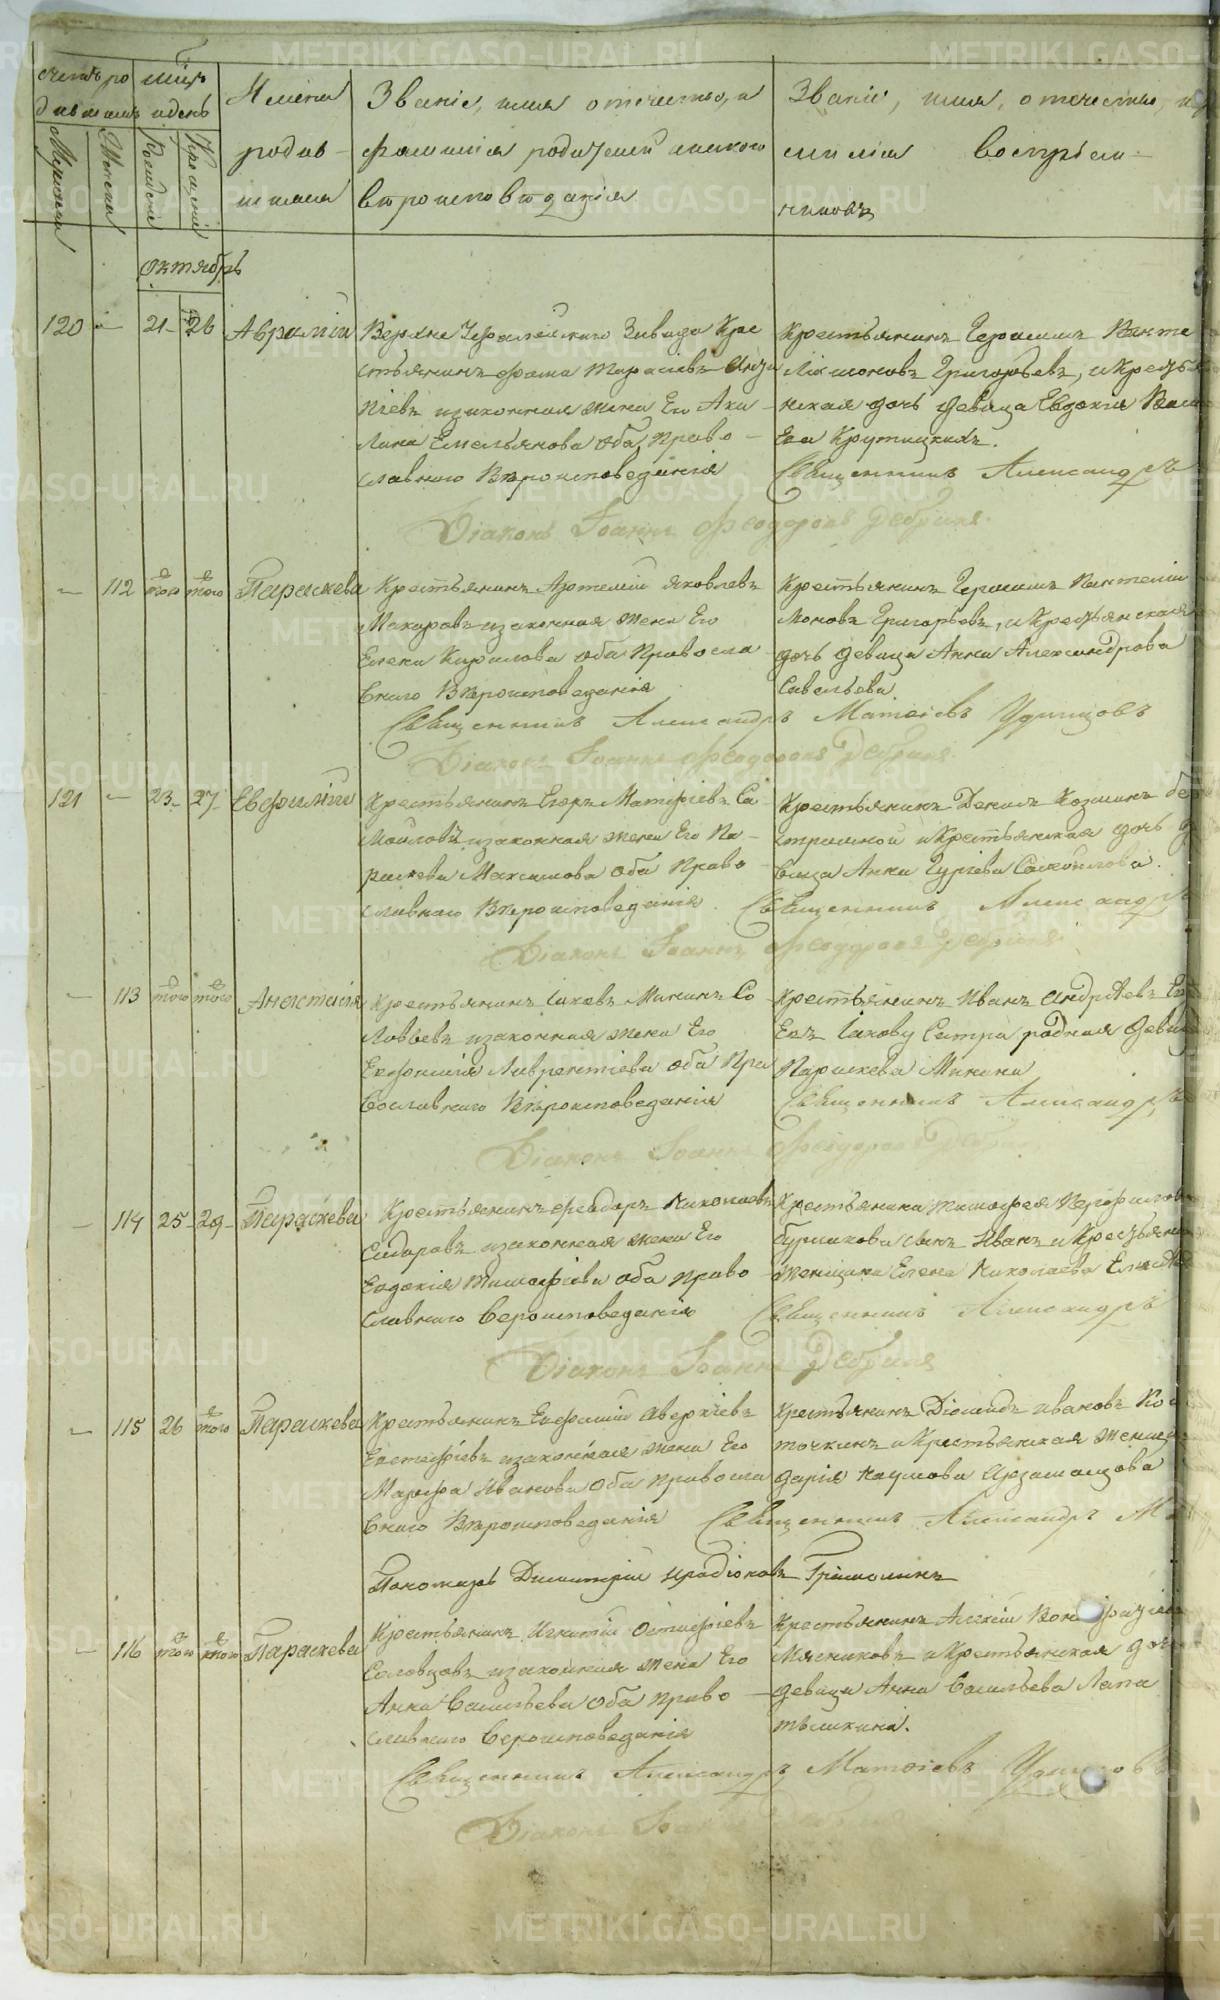 METRIKI.GASO-URAL.RU
счетъ ро
дившихся
Мужеска
Женска
мѣсяцъ
и день
Рожденія
Крещенія
Имена
родив-
шихся
Званіе, имя отечество, и
фамилія родителей и какого
вѣроисповѣданія
Званіе, имя, отечество, и
милія воспріем-
никовъ
октябрь
120 — 21 26 Аврамій
Верхне Уфалейскаго Завода Кре
стьянинъ Фома Тарасіевъ
и законная жена Его Аки
лина Емельянова оба Право-
славнаго Вѣроисповеданія
Крестьянинъ Герасимъ Панте
лімоновъ Григорьевъ, и Крестья
нская дочь девица Евдокія
Ева Крутицкихъ.
Священникъ Александръ
Діаконъ Іоаннъ Феодоровъ Дебринъ
— 112 того того Параскева
Крестьянинъ Артемій Яковлевъ
Макаровъ и законная жена Его
Елена Кирилова оба Правосла
внаго Вѣроисповеданія
Крестьянинъ Герасимъ Пантелій
моновъ Григорьевъ, и Крестьянская
дочь девица Анна Александрова
Савельева.
Священникъ Александръ Матѳіевъ Удинцовъ
Діаконъ Іоаннъ Феодоровъ Дебринъ
121 — 23 27 Евфимій
Крестьянинъ Егоръ Матфіевъ Са
мойловъ и законная жена Его Па-
раскева Максимова оба Право
славнаго Вѣроисповеданія
Крестьянинъ Данилъ Козминъ
и Крестьянская дочь д
вица Анна Гуріева Самойлова.
Священникъ Александръ
Діаконъ Іоаннъ Феодоровъ Дебринъ
— 113 того того Анастасія
Крестьянинъ Іаковъ Мининъ Со
ловьевъ и законная жена Его
Евфимія Лаврентіева оба Пра
вославнаго Вѣроисповеданія
Крестьянинъ Иванъ Андріевъ
Іакову Сестра родная девица
Параскева Минина
Священникъ Александръ
Діаконъ Іоаннъ Феодоровъ
— 114 25 29 Параскева
Крестьянинъ Феодоръ Николаевъ
Сидоровъ и законная жена Его
Евдокія Тимофіева оба Право
славнаго Вероисповеданія
Крестьянина Тимофея
Бурмакова сынъ Иванъ и Крестьянская
женщина Елена Николаева
Священникъ Александръ
Діаконъ Іоаннъ Дебринъ
— 115 26 того Параскева
Крестьянинъ Евфимій Аверкіевъ
Евстафіевъ и законная жена Его
Марфа Иванова оба Правосла
внаго Вѣроисповеданія
Крестьянинъ Діомидъ Ивановъ Ко
точкинъ и Крестьянская женщи
Дарія Наумова Арзамасцова
Священникъ Александръ М
Пономарь Димитрій Иродіоновъ
— 116 того того Параскева
Крестьянинъ Игнатій Остафіевъ
Соловцовъ и законная жена Его
Анна Савельева оба Право-
славнаго Вероисповеданія
Крестьянинъ Алексій Вонифатіев
Мясниковъ и Крестьянская доч
девица Анна Савельева Лапа
тышкина.
Священникъ Александръ Матѳіевъ Удинцовъ
Діаконъ Іоаннъ